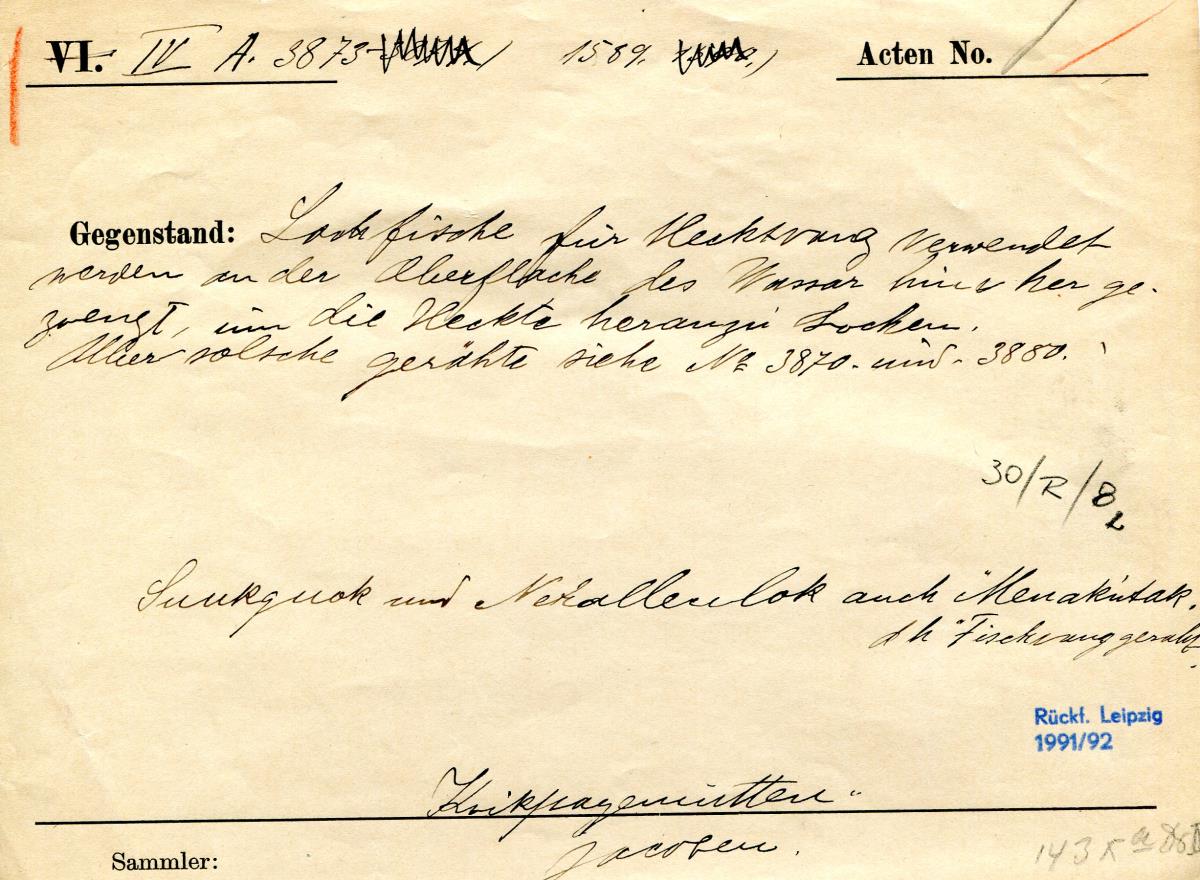 VI. IV A. 3873 1589. Acten No.
Gegenstand: Lockfische für Hecktvang Verwendet
werden an der Oberflache des Wassar hin u her ge-
zwengt, um die Heckte heranzu Locken.
Uber solsche gerähte siehe No 3870. und - 3880.
30/R/8
Suukquok und auch "Menakutak.
d h "Fischvanggeräht
Rückf. Leipzig
1991/92
Kvikpagemutten"
Sammler: Jacobsen.
143